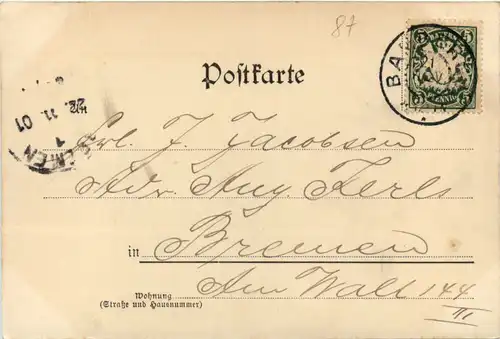 87
Postkarte
BA
5 5
PFENNIG
5 5
22. 11. 01
1
An
Frl. J. Jacobsen
Adr. Aug. Kerls
in Bremen
Wohnung
(Straße und Hausnummer)
Am Wall 144
III